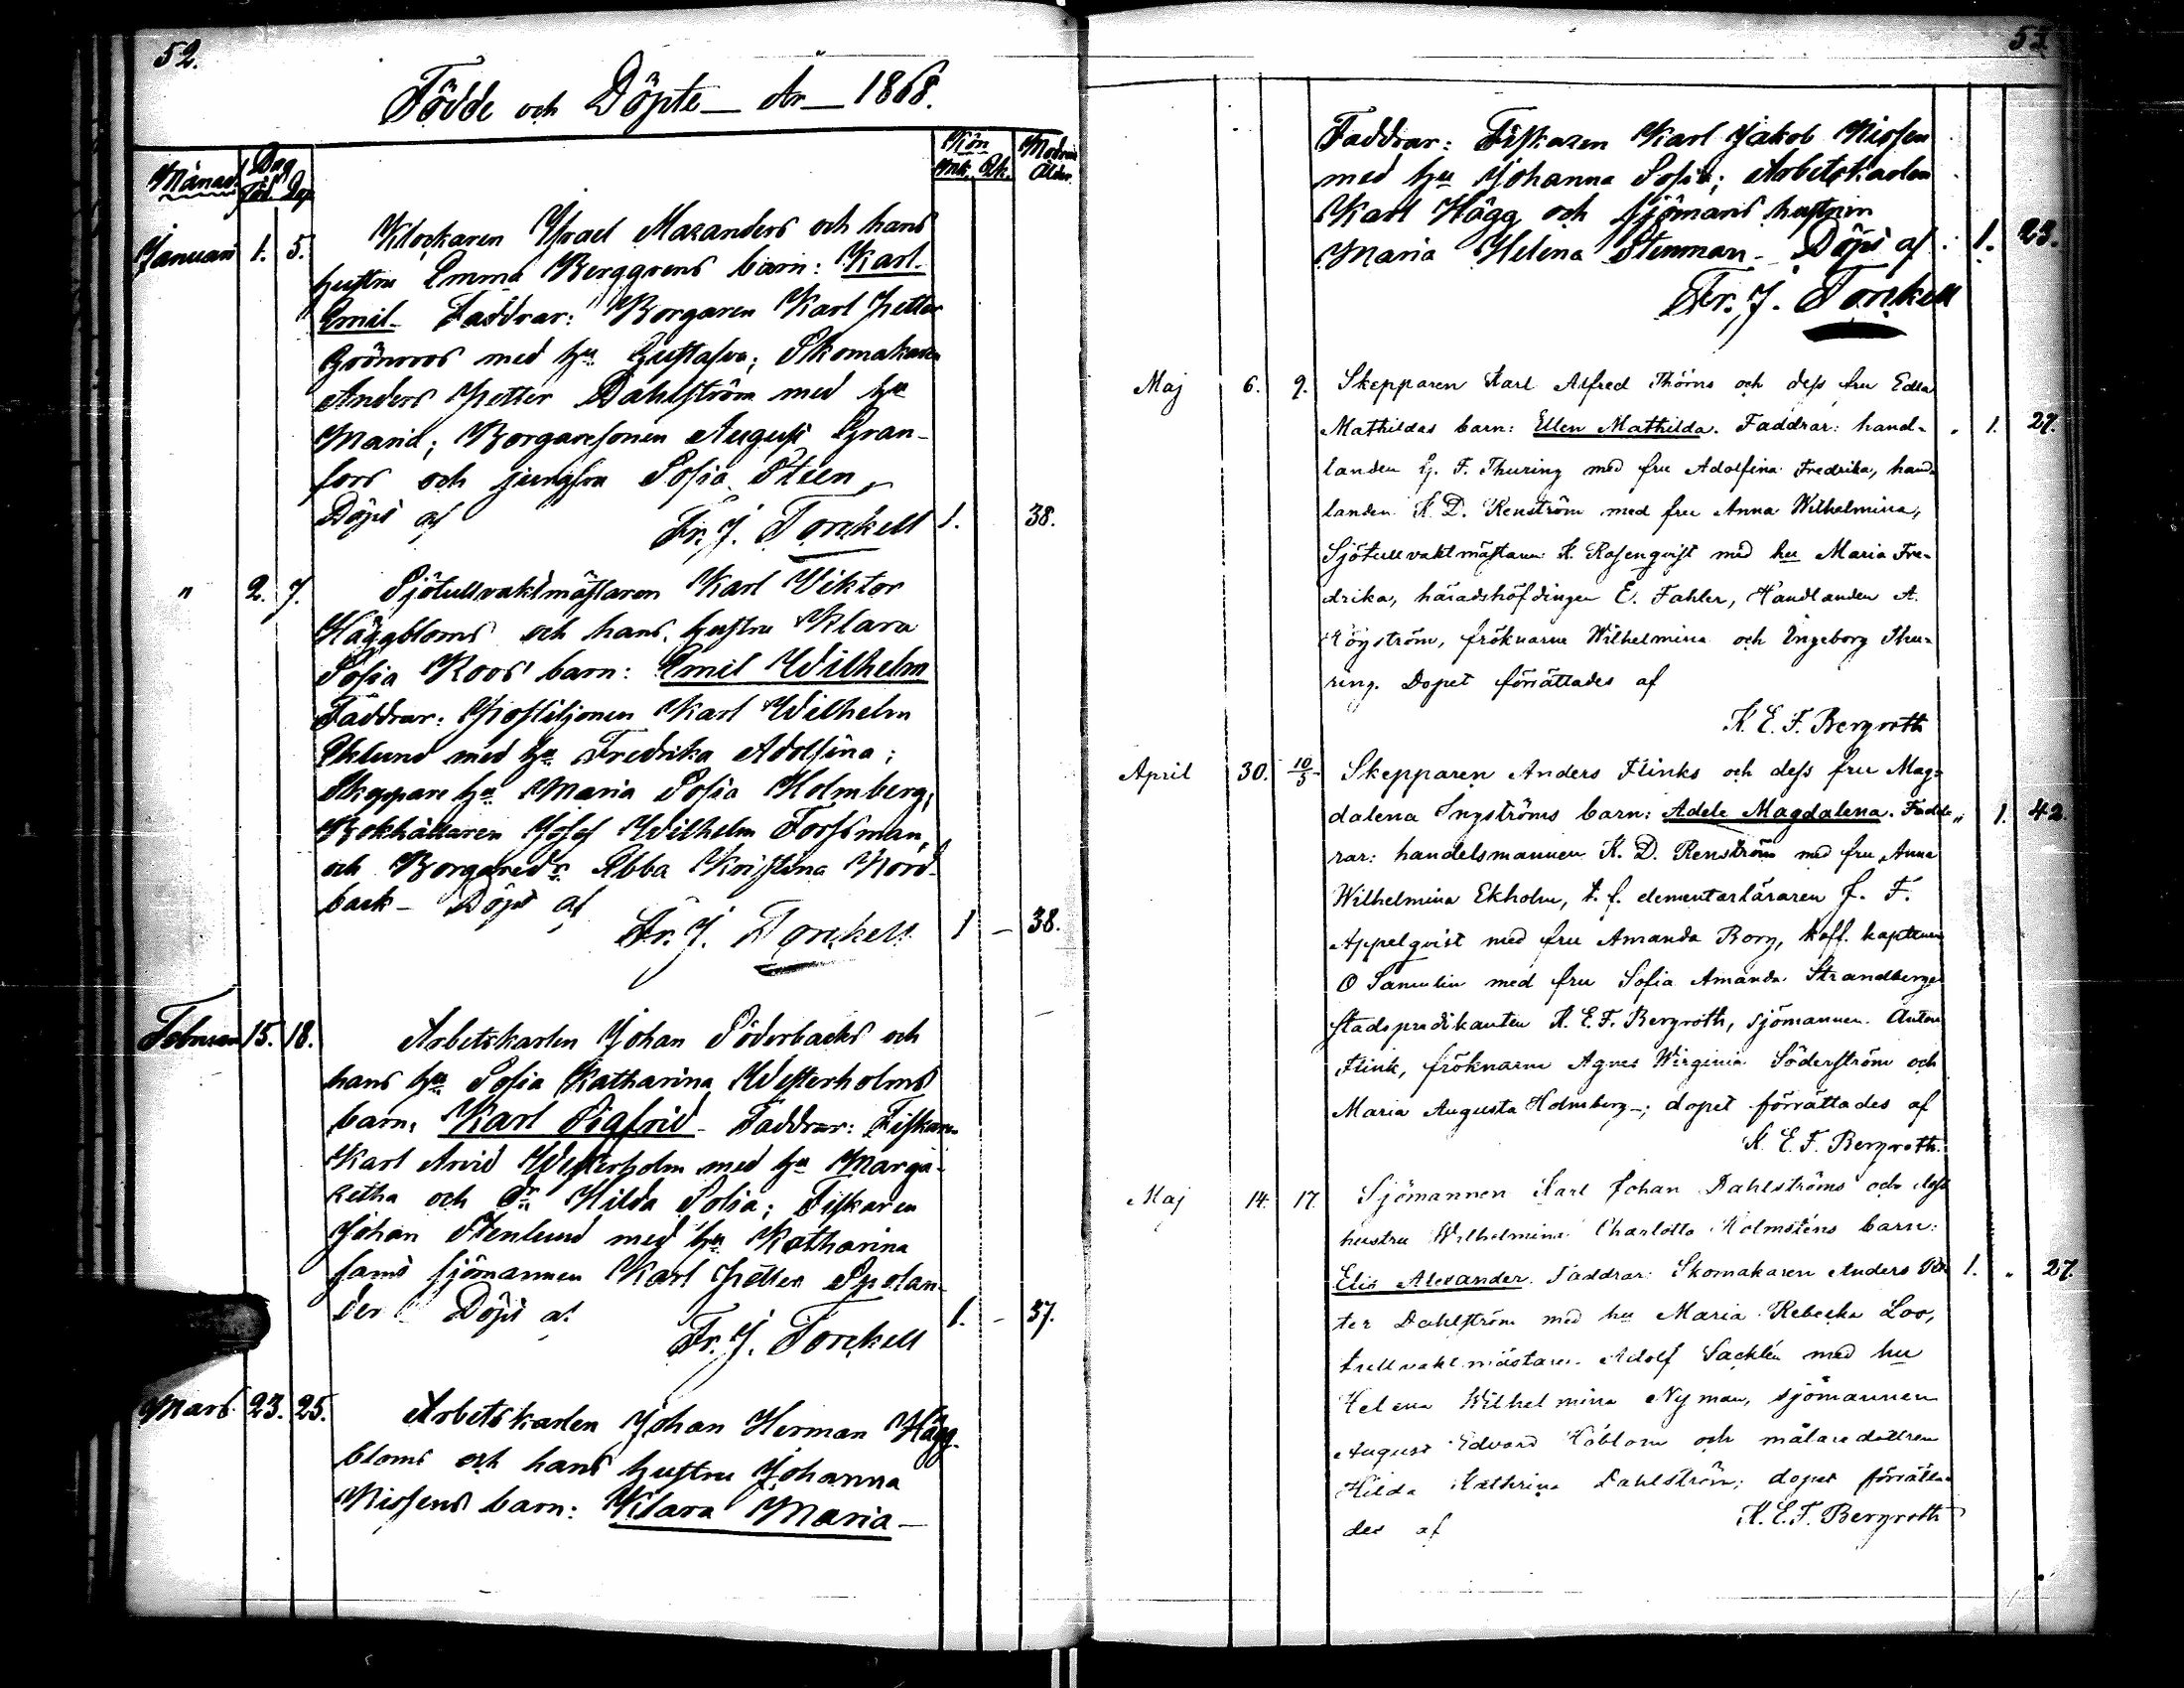 52.
Födde och Döpte – År – 1868.
Månad. Dag Kön Modrens
Föd. Dop Mk. Qk. Ålder.
Januari 1. 5. Klockaren Israel Mazanders och hans
hustru Emma Berggrens barn: Karl
Emil – Faddrar: Borgaren Karl Petter
Grönroos med hu Gustafva; Skomakaren
Anders Petter Dahlström med hu
Maria; Borgaresonen August Gran-
fors och jungfru Sofia Steen,
Döpt af Fr. J. Torckell 1. 38.
" 2. 7. Sjötullvaktmästaren Karl Viktor
Häggbloms och hans hustru Klara
Sofia Roos' barn: Emil Wilhelm
Faddrar: Postiljonen Karl Wilhelm
Eklund med hu Fredrika Adolfina;
Skeppare hu Maria Sofia Holmberg,
Bokhållaren Josef Wilhelm Forssman,
och Borgaredr Ebba Kristina Nord-
back – Döpt af
Fr. J. Torckell 1 – 38.
Februari 15. 18. Arbetskarlen Johan Söderbacks och
hans hu Sofia Katharina Westerholms
barn: Karl Sigfrid – Faddrar: Fiskaren
Karl Arvid Westerholm med hu Marga-
retha och dr Hilda Sofia; Fiskaren
Johan Stenlund med hu Katharina
samt sjömannen Karl Petter Spolan-
der Döpt af 1. – 37.
Fr. J. Torckell
Mars. 23. 25. Arbetskarlen Johan Herman Hägg-
bloms och hans hustru Johanna
Nissens barn: Klara Maria –
53.
Faddrar: Fiskaren Karl Jakob Nissen
med hu Johanna Sofia; Arbetskarlen
Karl Hägg och Sjömans hustrun
Maria Helena Stenman – Döpt af 1. 23.
Fr. J. Torckell
Maj 6. 9. Skepparen Karl Alfred Thörns och dess fru Edla
Mathildas barn: Ellen Mathilda. Faddrar: hand- " 1. 27.
landen G. F. Thuring med fru Adolfina Fredrika, hand-
landen K. D. Renström med fru Anna Wilhelmina,
Sjötullvaktmästaren K. Rosenqvist med hu Maria Fre-
drika, häradshöfdingen E. Fahler, Handlanden A.
Högström, fröknarna Wilhelmina och Ingeborg Thu-
ring. Dopet förrättades af
K. E. F. Bergroth
April 30. 10/5 Skepparen Anders Flinks och dess fru Mag-
dalena Ingströms barn: Adele Magdalena. Fadd- " 1. 42.
rar: handelsmannen K. D. Renström med fru Anna
Wilhelmina Ekholm, t. f. elementarläraren J. F.
Appelqvist med fru Amanda Borg, koff. kaptenen
O Samelin med fru Sofia Amanda Strandberg
stadspredikanten K. E. F. Bergroth, sjömannen Anton
Flink, fröknarna Agnes Wirginia Söderström och
Maria Augusta Holmberg –; dopet förrättades af
K. E. F. Bergroth.
Maj 14. 17. Sjömannen Karl Johan Dahlströms och dess
hustru Wilhelmina Charlotta Holmsténs barn:
Elis Alexander. Faddrar: Skomakaren Anders Pet- 1. " 27.
ter Dahlström med hu Maria Rebecka Loo,
tullvaktmästaren Adolf Sacklén med hu
Helena Wilhelmina Nyman, sjömannen
August Edvard och målaredottren
Hilda Kathrina Dahlström; dopet förrätta-
des af K. E. F. Bergroth